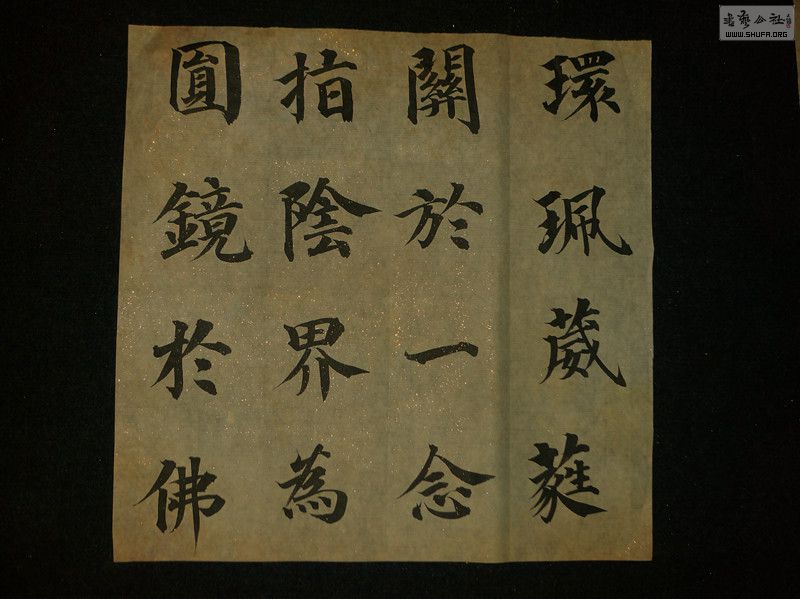 環珮葳蕤
關於一念
指陰界為
圓鏡於佛
書藝公社
WWW.SHUFA.ORG